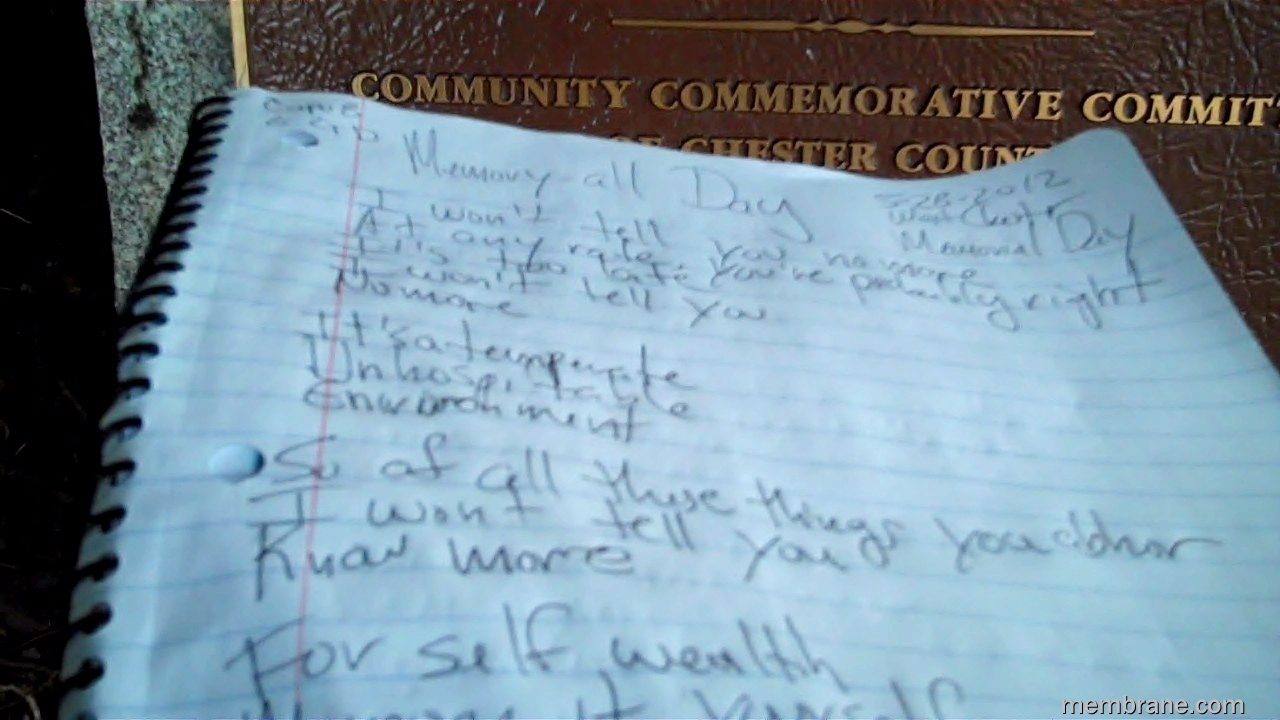 COMMUNITY COMMEMORATIVE COMMIT
OF CHESTER COUNT
Memory-all Day
5-28-2012
West Chester
Memorial Day
I won't tell you no more
At any rate, you're probably right
It's too late
I won't tell you
No more
It's a temperate
Unhospitable
Environment
So of all these things you adhor
I won't tell you
Know more
For self wealth
it yourself
membrane.com